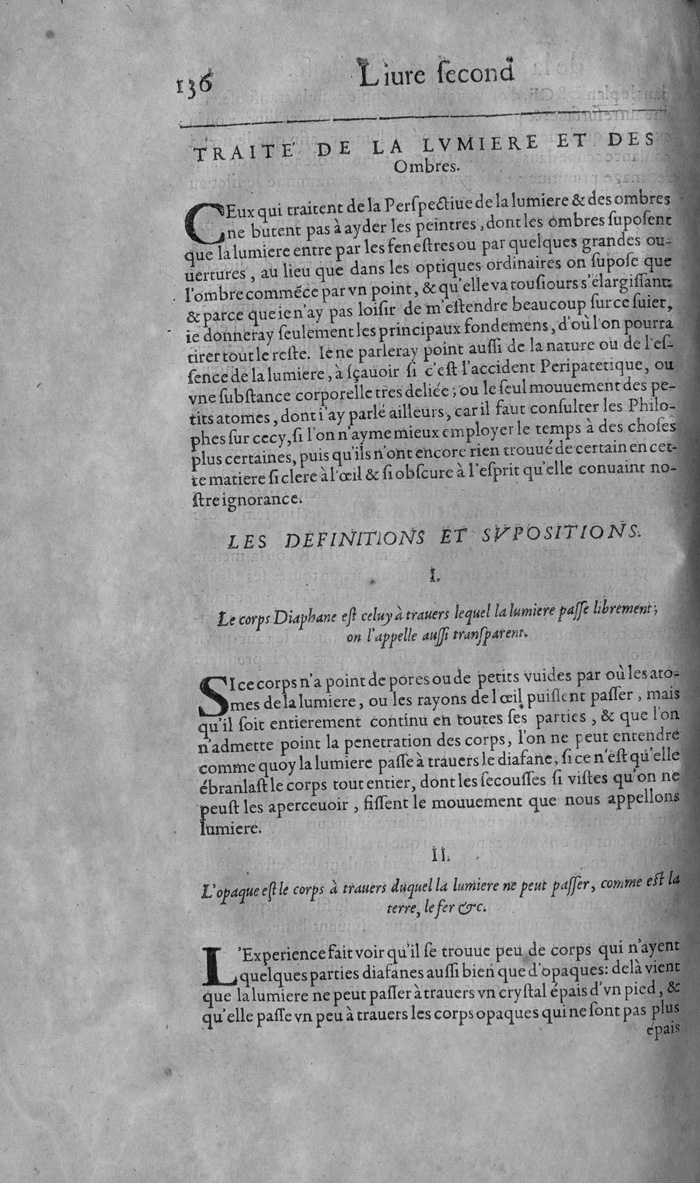 136 Liure ſecond
TRAITE DE LA LVMIERE ET DES
Ombres.
CEux qui traitent de la Perſpectiue de la lumiere & des ombres
ne butent pas à ayder les peintres, dont les ombres ſupoſent
que la lumiere entre par les feneſtres ou par quelques grandes ou-
uertures, au lieu que dans les optiques ordinaires on ſupoſe que
l'ombre commẽce par vn point, & qu'elle va touſiours s'élargiſſant:
& parce que ie n'ay pas loiſir de m'eſtendre beaucoup ſur ce ſuiet,
ie donneray ſeulement les principaux fondemens, d'où l'on pourra
tirer tout le reſte. Ie ne parleray point auſſi de la nature ou de l'eſ-
ſence de la lumiere, à ſçauoir ſi c'eſt l'accident Peripatetique, ou
vne ſubſtance corporelle tres deliée; ou le ſeul mouuement des pe-
tits atomes, dont i'ay parlé ailleurs, car il faut conſulter les Philo-
phes ſur cecy, ſi l'on n'ayme mieux employer le temps à des choſes
plus certaines, puis qu'ils n'ont encore rien trouué de certain en cet-
te matiere ſi clere à l'œil & ſi obſcure à l'eſprit qu'elle conuaint no-
ſtre ignorance.
LES DEFINITIONS ET SVPOSITIONS.
I.
Le corps Diaphane eſt celuy à trauers lequel la lumiere paſſe librement;
on l'appelle auſſi tranſparent.
SI ce corps n'a point de pores ou de petits vuides par où les ato-
mes de la lumiere, ou les rayons de l œil puiſſent paſſer, mais
qu'il ſoit entierement continu en toutes ſes parties, & que l'on
n'admette point la penetration des corps, l'on ne peut entendre
comme quoy la lumiere paſſe à trauers le diafane, ſi ce n'eſt qu'elle
ébranlaſt le corps tout entier, dont les ſecouſſes ſi viſtes qu'on ne
peuſt les aperceuoir, fiſſent le mouuement que nous appellons
lumiere.
II.
L'opaque eſt le corps à trauers duquel la lumiere ne peut paſſer, comme eſt la
terre, le fer &c.
L'Experience fait voir qu'il ſe trouue peu de corps qui n'ayent
quelques parties diafanes auſſi bien que d'opaques: delà vient
que la lumiere ne peut paſſer à trauers vn cryſtal épais d'vn pied, &
qu'elle paſſe vn peu à trauers les corps opaques qui ne ſont pas plus
épais